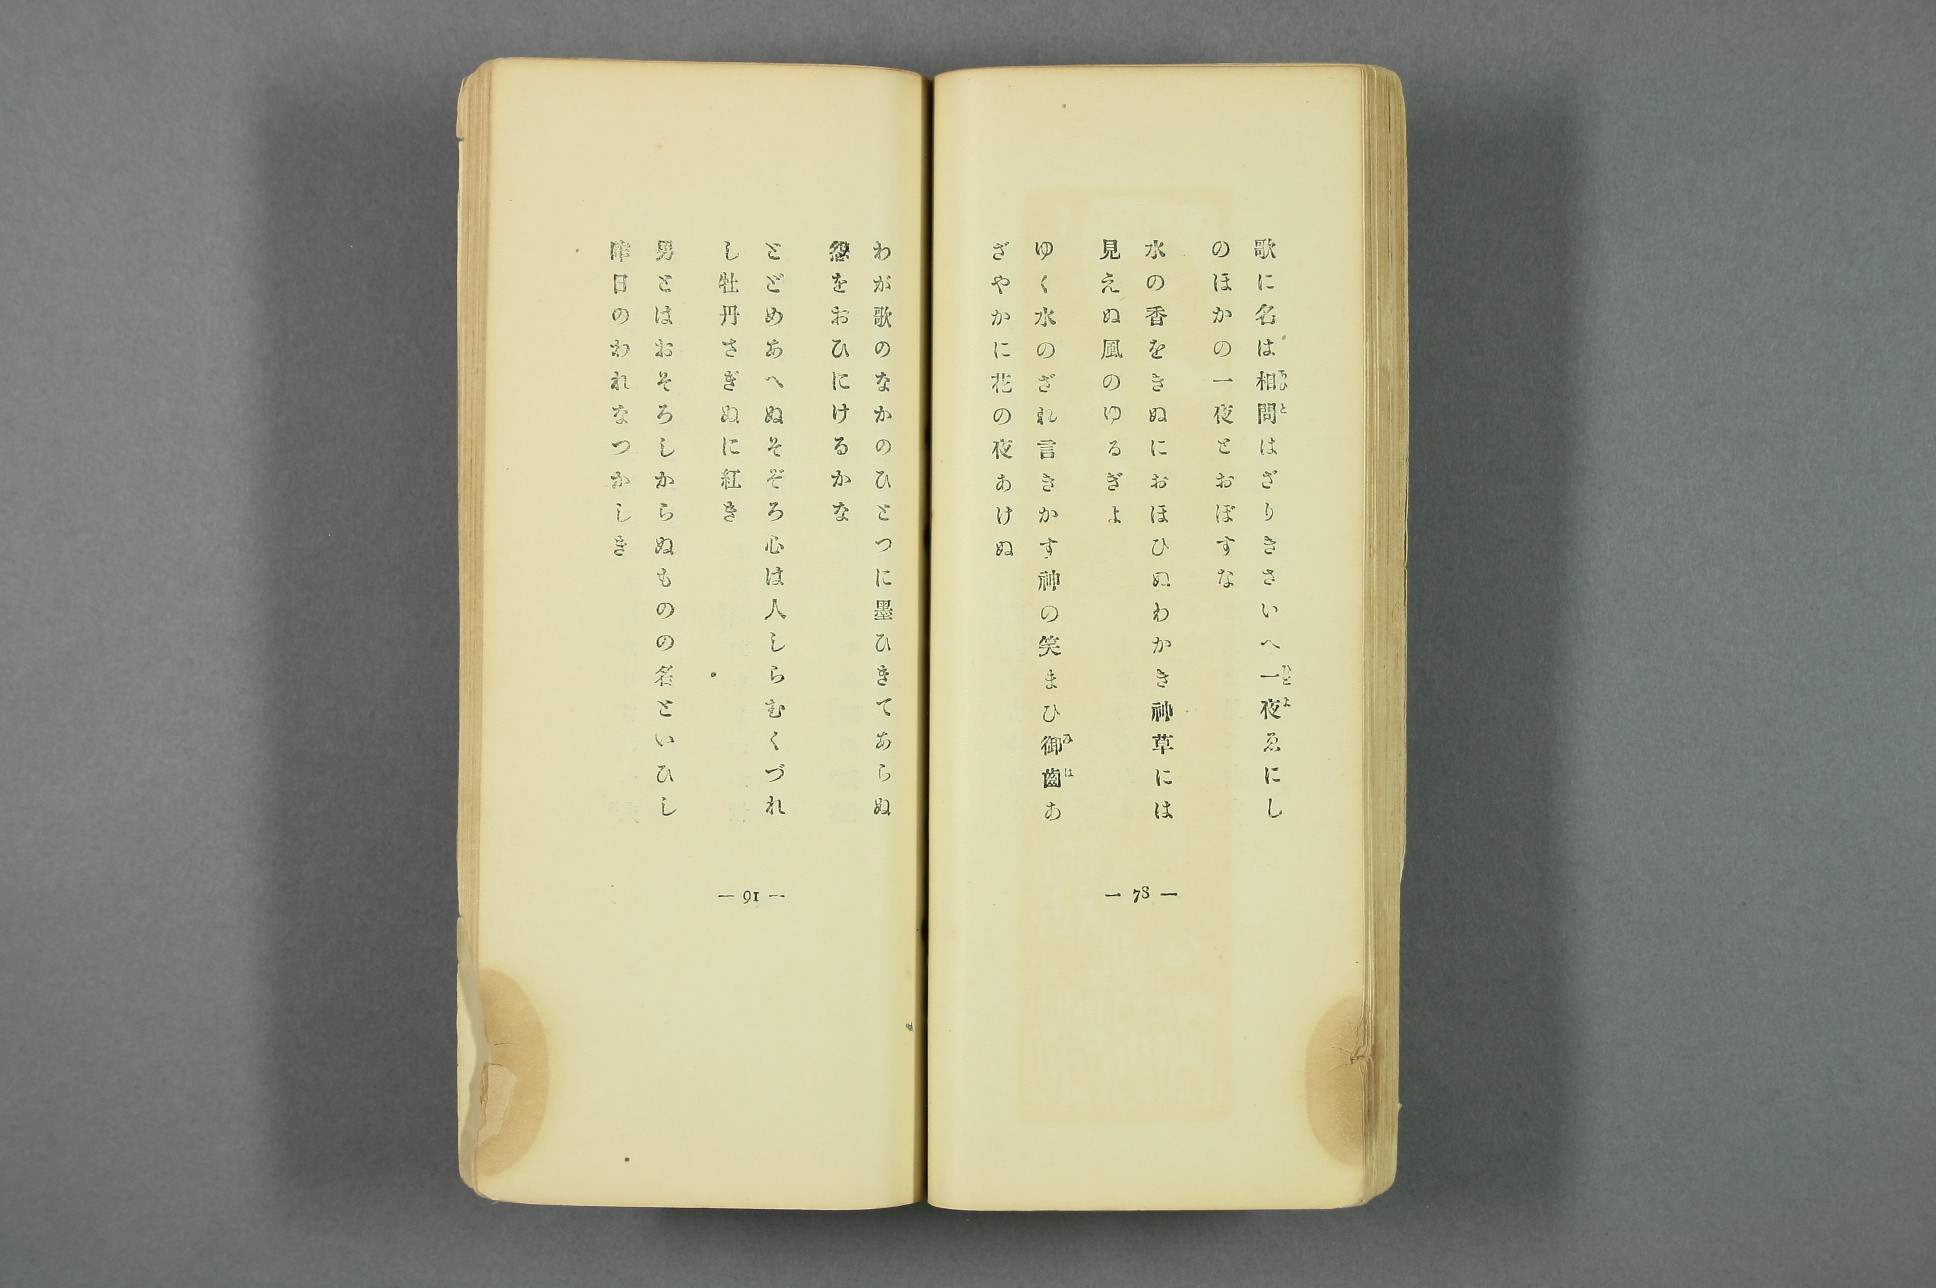 歌に名は相問はざりきさいへ一夜ゑにし
のほかの一夜とおぼすな
水の香をきぬにおほひぬわかき神草には
見えぬ風のゆるぎよ
ゆく水のざれ言きかす神の笑まひ御齒あ
ざやかに花の夜あけぬ
— 78 —
わが歌のなかのひとつに墨ひきてあらぬ
怨をおひにけるかな
とどめあへぬそぞろ心は人しらむくづれ
し牡丹さぎぬに紅き
男とはおそろしからぬものの名といひし
昨日のわれなつかしき
— 91 —